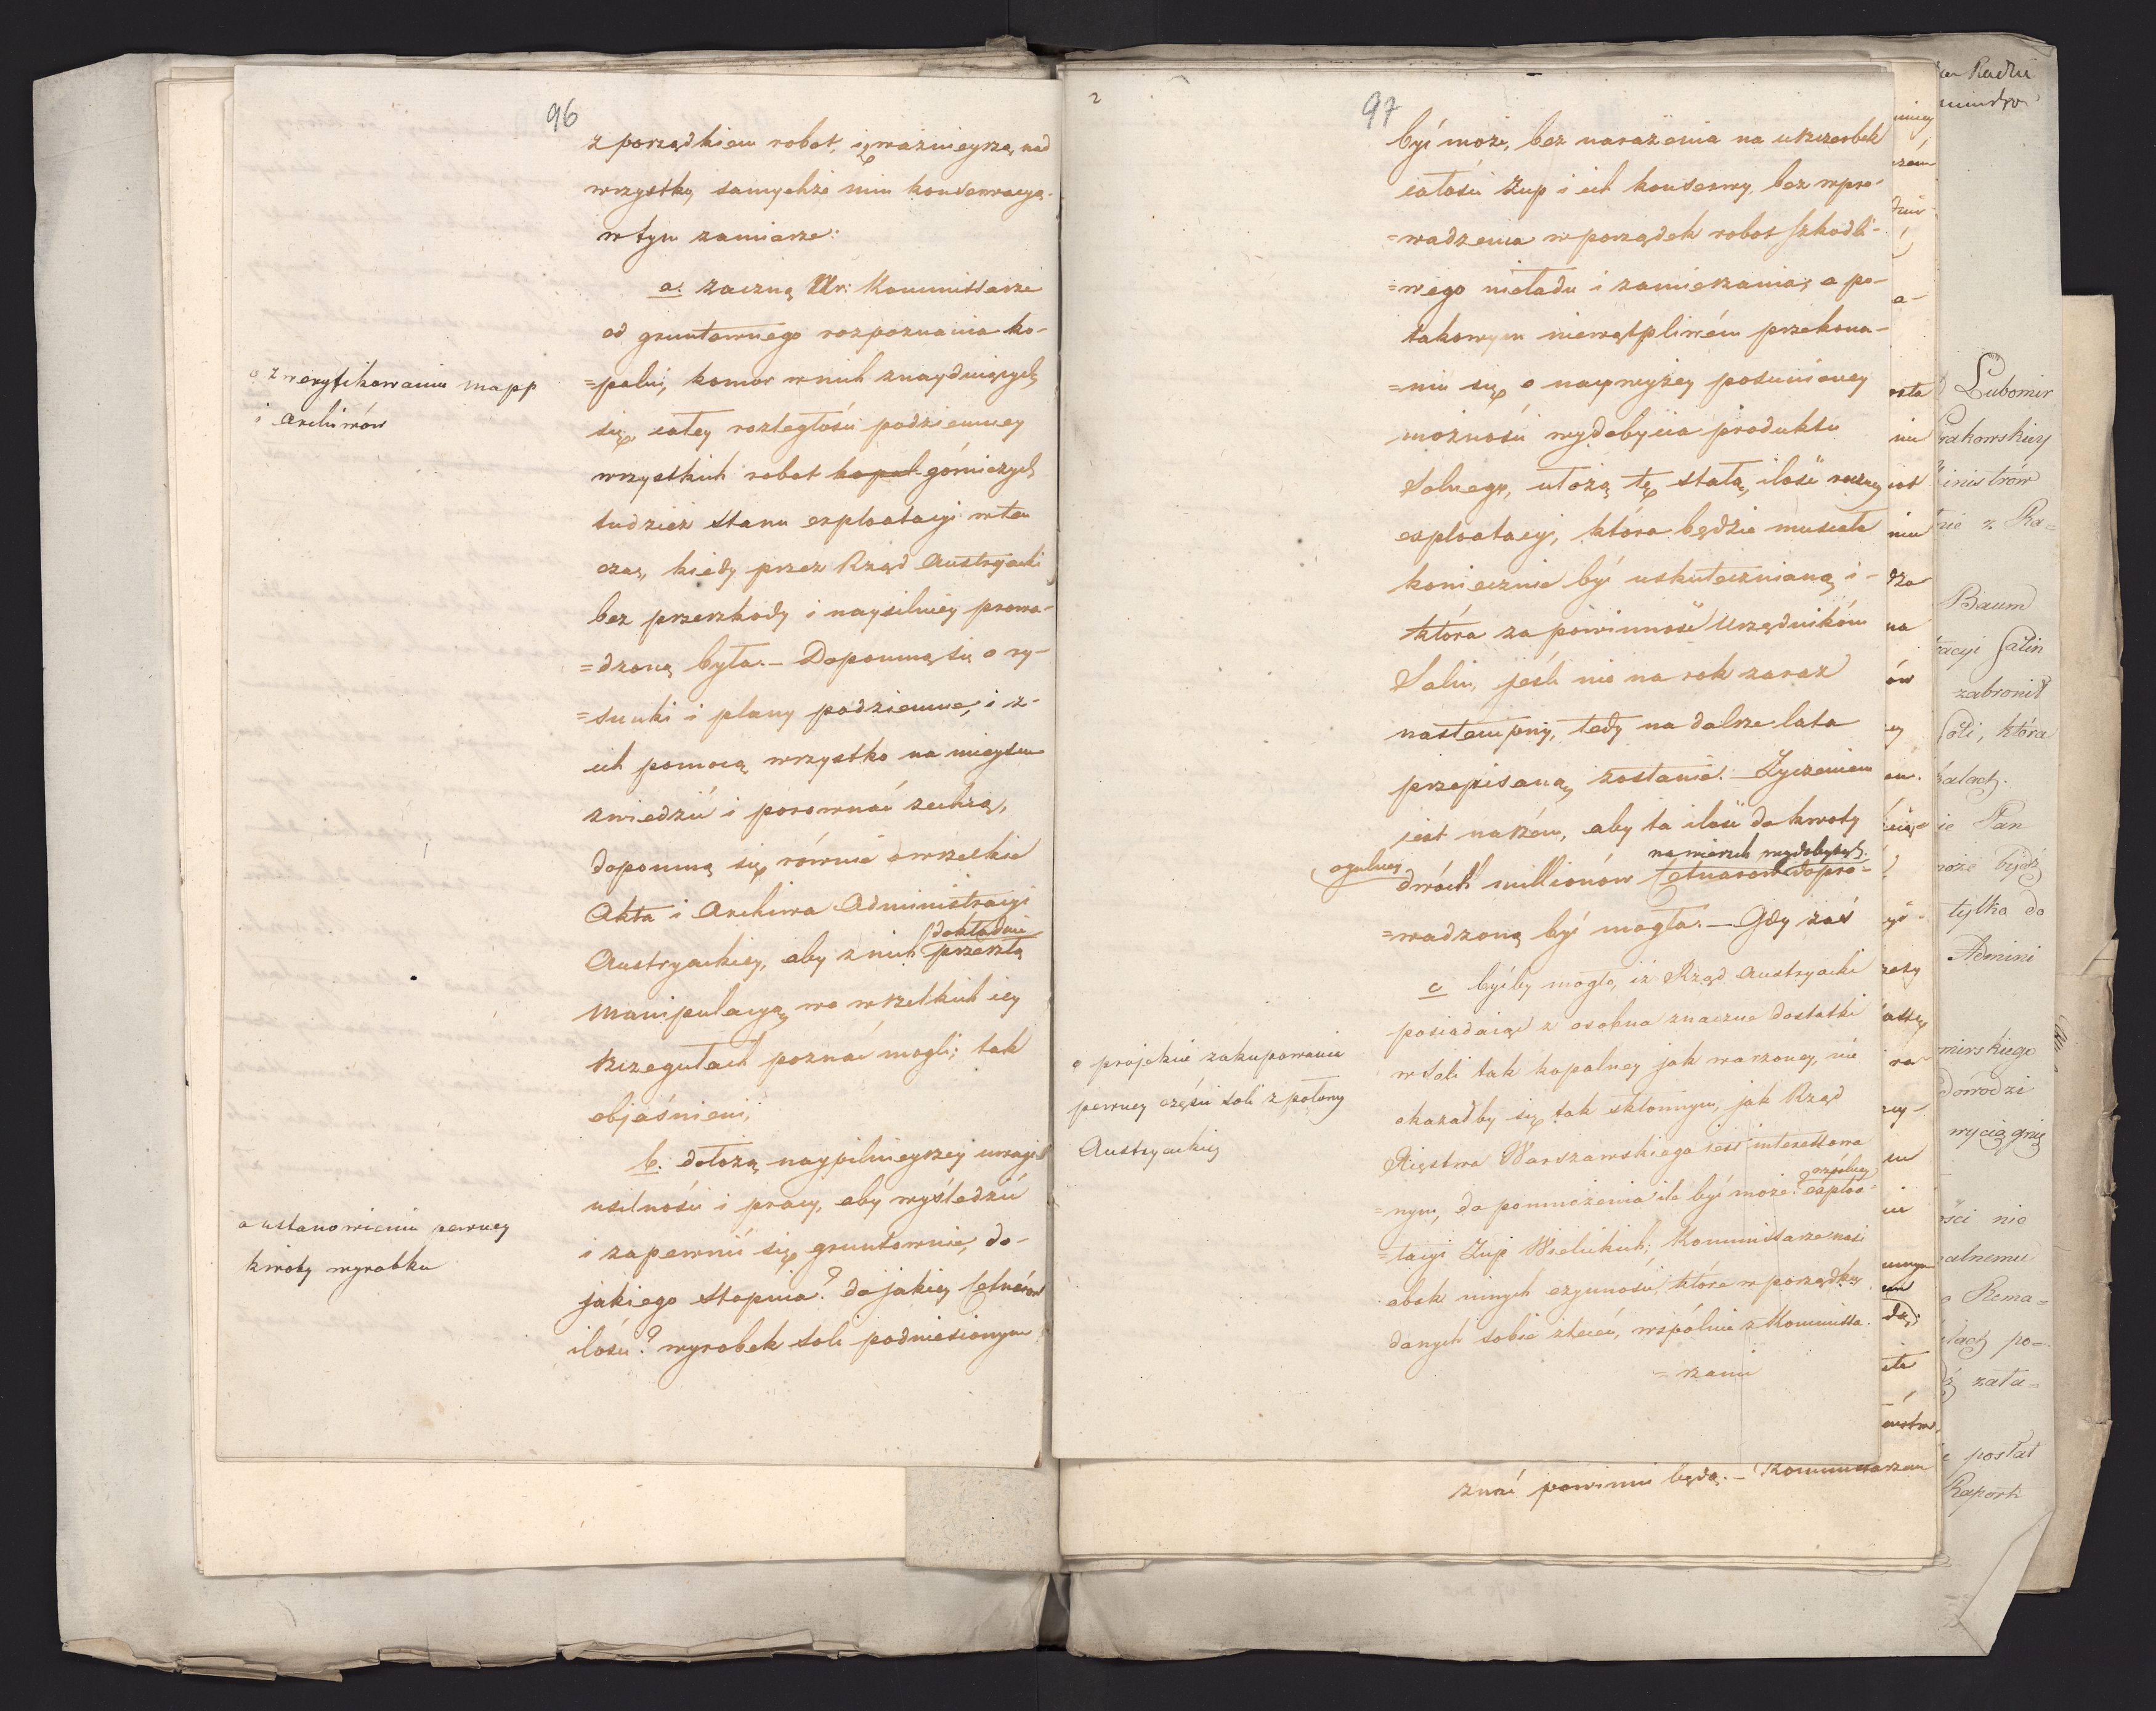 96
z porządkiem robot, i ważnieyszą nad
wszystko, samychże min konserwacyą.
w tym zamiarze:
a. zaczną Ur: Kommissarze
od gruntownego rozpoznania ko-
=palni, komor w nich znayduiących
się, całey rozległości podziemney
wszystkich robot kopal górniczych,
tudzież stanu exploatacyi w ten
czas, kiedy przez Rząd Austryacki
bez przeszkody i naysilniey prowa-
=dzoną była. — Dopomną się o ry-
=sunki i plany podziemne, i z-
ich pomocą wszystko na mieyscu
zwiedzić i porównać zechcą,
dopomną się równie o wszelkie
Akta i Archiwa Administracyi
dokładnie
Austryackiey, aby z nich przeszłą
manipulacyą we wszelkich iey
szczegułach poznać mogli; tak
objaśnieni,
b. dołożą naypilnieyszey uwagi
usilności i pracy, aby wyśledzić
i zapewnić się gruntownie, do-
jakiego stopnia? do jakiey Cetnarów
ilości? wyrobek soli podniesionym
o zweryfikowaniu mapp
i Archiwów
o ustanowieniu pewney
kwoty wyrobku
2
97
być może, bez narażenia na uszczerbek
całości Żup i ich konserwy, bez wpro-
=wadzenia w porządek robot szkodli-
=wego nieładu i zamieszania; a po-
takowym niewątpliwém przekona-
=niu się o naywyżey posunioney
możności wydobycia produktu
Solnego, ułożą tę stałą, ilość roczney
exploatacyi, która będzie musiała
koniecznie być uskutecznianą, i-
która za powinność Urzędników
Salin, jeśli nie na rok zaraz
nastempny, tedy na dalsze lata
przepisaną zostanie. — Życzeniem
jest naszém, aby ta ilość do kwoty
ogulney
na wierzch wydobytych
dwóch millionów Cetnarów dopro-
=wadzoną być mogła. — Gdy zaś
c byćby mogło, iż Rząd Austryacki
posiadaiąc z osobna znaczne dostatki
w Soli tak kopalney jak warzoney, nie
okazałby się tak skłonnym, jak Rząd
Xięstwa Warszawskiego iest interessowa
wspólney
=nym, do pomnożenia ile być może exploa=
=tacyi Żup Wielickich; Kommissarze nasi
obok innych czynności, które w porządku
danych sobie zleceń, wspólnie z Kommissa-
=rzami
o projekcie zakupowania
pewney części soli z połowy
Austryackiey
znać powinni będą. — Kommissarzom
Lubomir
Krakowskiey
inistrów
nie z Ra=
Baum
racyi Salin
zabronił
Soli, która
Pan
może bydź
tylko do
Admini
mirskiego
dowodzi
wyciągnię
ości nie
alnemu
Rema=
po=
zała=
posłał
Raport